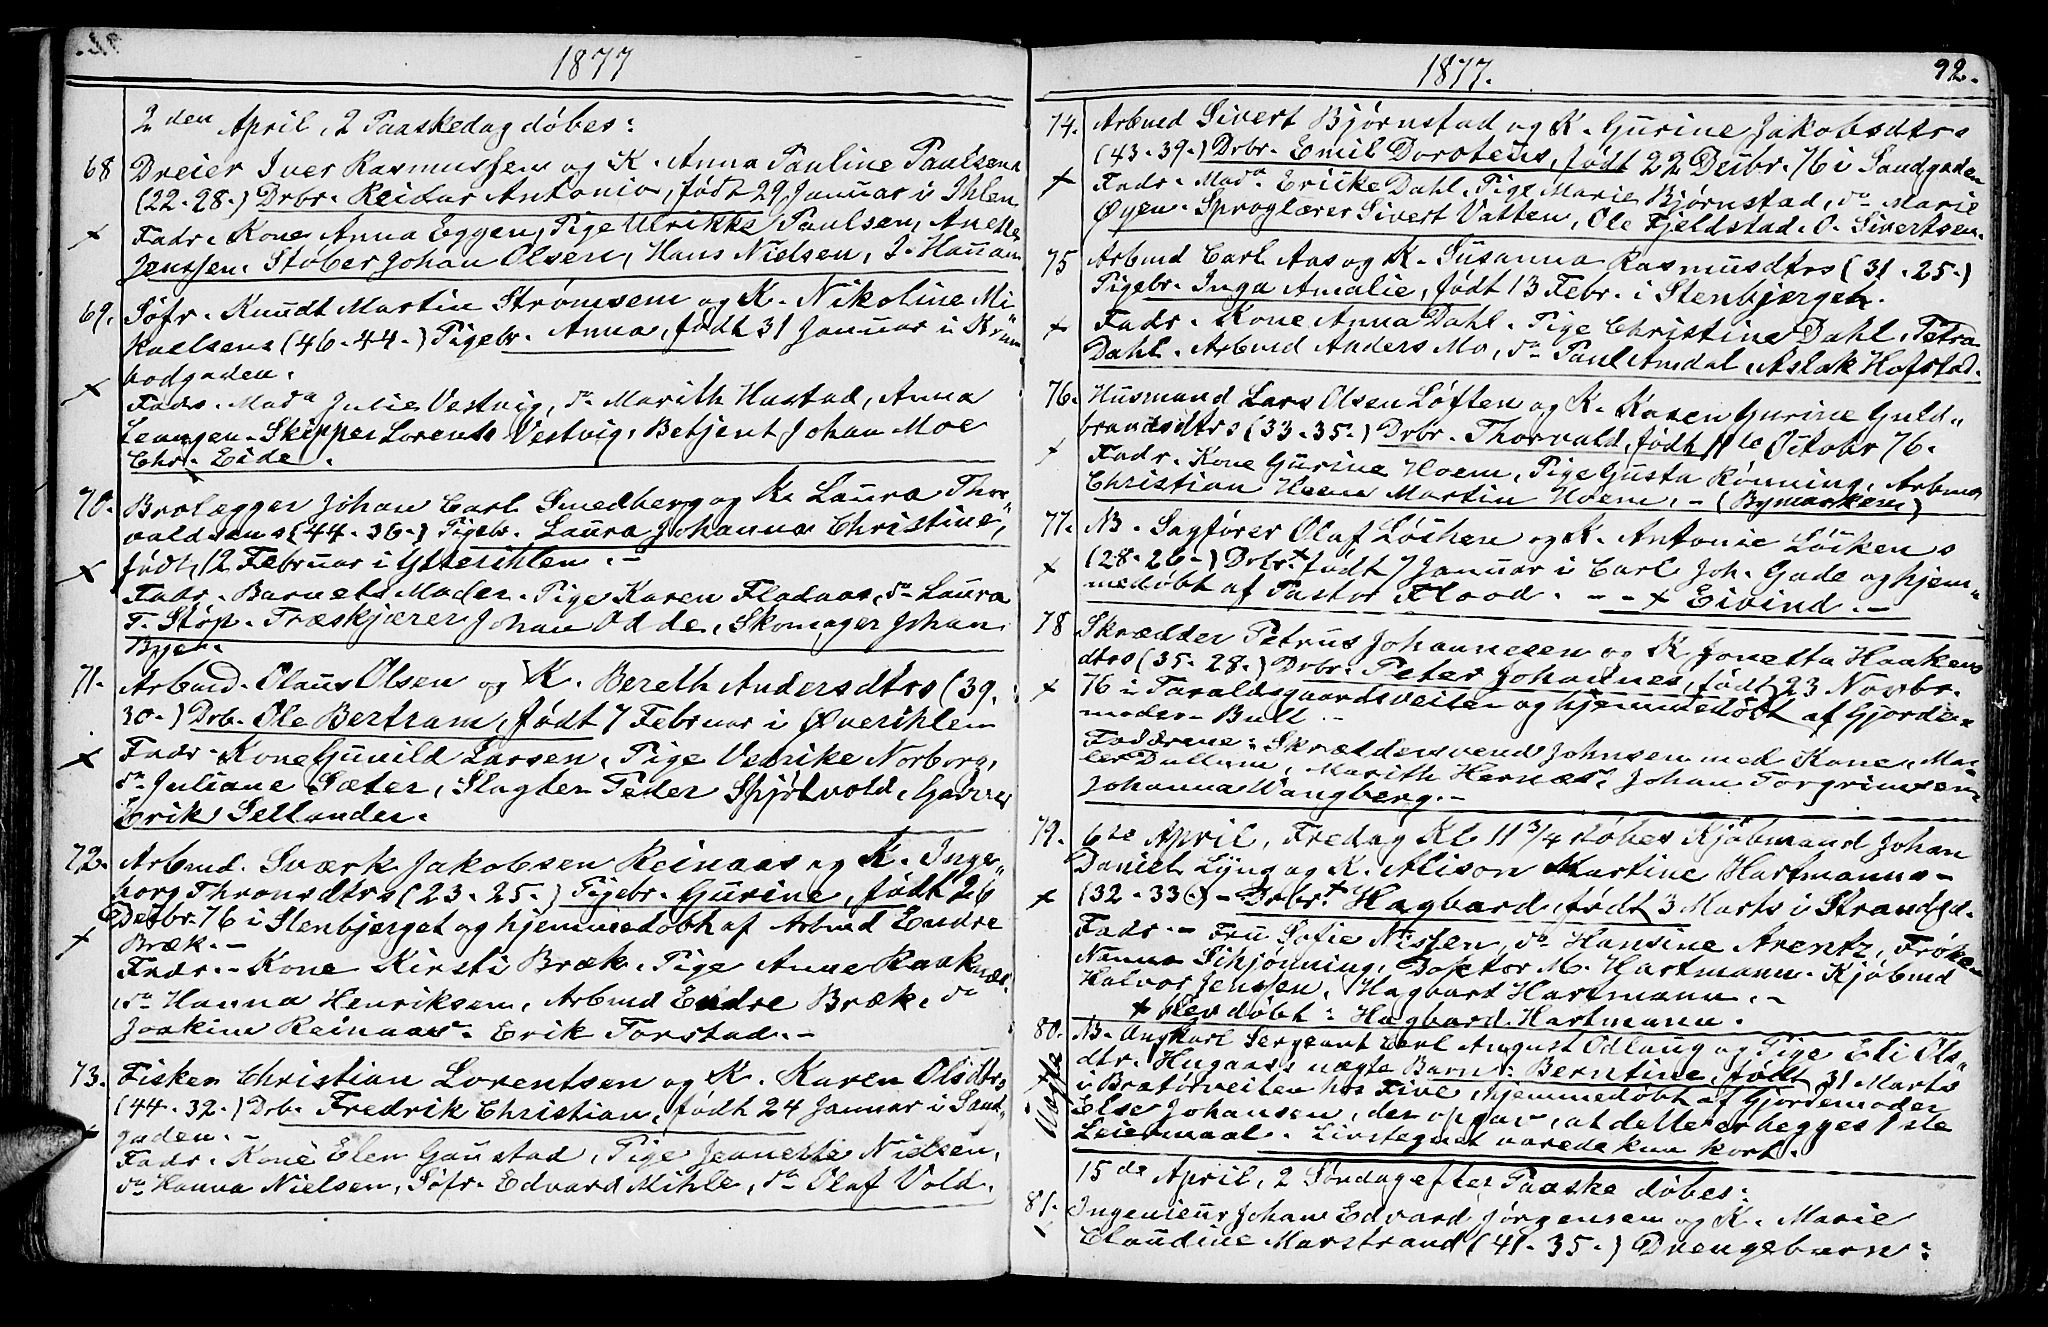 1877
2den April, 2 Paaskedag døbes:
68 Dreier Iver Rasmussen og K. Anna Pauline Paulsens
(22-28-) Drbr. Reidar Antonio, født 29 Januar i Ihlen
+ Fadr. Kone Anna Eggen, Pige Ulrikke Paulsen, Anette
Jenssen. Støber Johan Olsen, Hans Nielsen, J. Hauan
69. Søfr. Knudt Martin Strømsem og K. Nikoline Mi-
kaelsens (46-44-) Pigebr. Anna, født 31 Januar i Kram
bodgaden.
+ Fadr. Mada Julie Vestvig, do Marith Hustad, Anna
Leangen. Skipper Lorents Vestvig, Betjent Johan Moe
Chr. Eide.
70. Brolægger Johan Carl Smedberg og K. Laura Thor"
valdsens (44-36-) Pigebr. Laura Johanna Christine,
+ født 12 Februar i Ytterihlen. -
Fadr. Barnets Moder. Pige Karen Fladaas, do Laura
T. Støp. Træskjærer Johan Odde, Skomager Johan
Byer.
71. Arbmd. Olaus Olsen og K. Bereth Andersdtrs (39.
30-) Drb. Ole Bertram, født 7 Februar i Øverihlen
+ Fadr. Kone Gunild Larsen, Pige Vedrike Norborg,
do Juliane Sæter, Slagter Peter Spjøtvold, Garver
Erik Sellander.
72. Arbmd. Sværk Jakobsen Reinaas og K. Inge"
borg Thronsdtrs (23-25-) Pigebr. Gurine, født 26
Desbr. 76 i Stenbjerget og hjemmedøbt af Arbmd Endre
+ Bræk. -
Fadr. - Kone Kirsti Bræk. Pige Anne Raaknæs.
do Hanna Henriksen, Arbmd Endre Bræk, do
Joakim Reinaas. Erik Forstad. -
73. Fisker Christian Lorentsen og K. Karen Olsdtrs
(44-32-) Drb. Fredrik Christian, født 24 Januar i Sand"
+ gaden. -
Fadr. Kone Elen Gaustad, Pige Jeanette Nielsen,
do Hanna Nielsen, Søfr. Edvard Mihle, do Olaf Vold.
1877. 92.
74. Arbmd Sivert Bjørnstad og K. Gurine Jakobsdtrs
(43-39-) Drbr. Emil Doroteus, født 22 Desbr. 76 i Sandgaden
+ Fadr. Mada Ericke Dahl. Pige Marie Bjørnstad, do Marie
Øyen. Sproglærer Sivert Vatten, Ole Fjeldstad. O. Sivertsen.
75 Arbmd Carl Aas og K. Susanna Rasmusdtrs (31-25-)
Pigebr. Inga Amalie, født 13 Febr. i Stenbjerget.
+ Fadr. Kone Anna Dahl. Pige Christine Dahl. Petra
Dahl. Arbmd Anders Mo, do Paul Amdal, Aslak Hofstad.
76. Husmand Lars Olsen Løften og K. Karen Gurine Guld"
brandsdtrs (33-35-) Drbr. Thorvald, født 11te Oktobr 76.
+ Fadr. Kone Gurine Hoem, Pige Gusta Rønning, Arbmd
Christian Hoem Martin Hoem, - (Bymarken)
77. NB. Sagfører Olaf Løchen og K. Antonie Løikens
+ (28-26-) Drbr.+ født 7 Januar i Carl Joh. Gade og hjem"
medøbt af Pastor Flood. - - + Eivind. -
78 Skrædder Petrus Johannesen og K. Jonetta Haakens
dtrs (35-28-) Drbr. Peter Johannes, født 23 Novbr.
+ 76 i Taraldsgaardsveiten og hjemmedøbt af Gjorde"
moder Bull -
Fadderne: Skræddersvend Johnsen med Kone, Ma-
ler Dullum, Marith Hernæs, Johan Torgrimsen,
Johanna Wangberg. -
79. 6te April, Fredag Kl 11 3/4 døbes Kjøbmand Johan
Daniel Lyng og K. Alison Martine Hartmanns-
+ (32-33-) - Drbr.+ Hagbard, født 3 Marts i Strandgd.
Fadr. - Fru Sofie Nissen, do Hansine Arentz, Frøken
Nanna Schjønning, Doktor M. Hartmann. Kjøbmd
Halvor Jenssen, Hagbart Hartmann. -
+ blev døbt: Hagbard Hartmann.
80. NB. Ungkarl Sergeant Carl August Odlaug og Pige Eli Ols"
Uægte dtr. Hugaas's uægte Barn: Berntine, født 31 Marts
i Bratørveiten hos Five, hjemmedøbt af Gjordemoder
Else Johansen, der opgav, at dette er begges 1ste
Leiermaal. Livstegnet varede kun kort.
15de April, 2 Søndag efter Paaske døbes:
81. Ingenieur Johan Edvard Jørgensen og K. Marie
Claudine Marstrand (41-35-) Drengebarn: